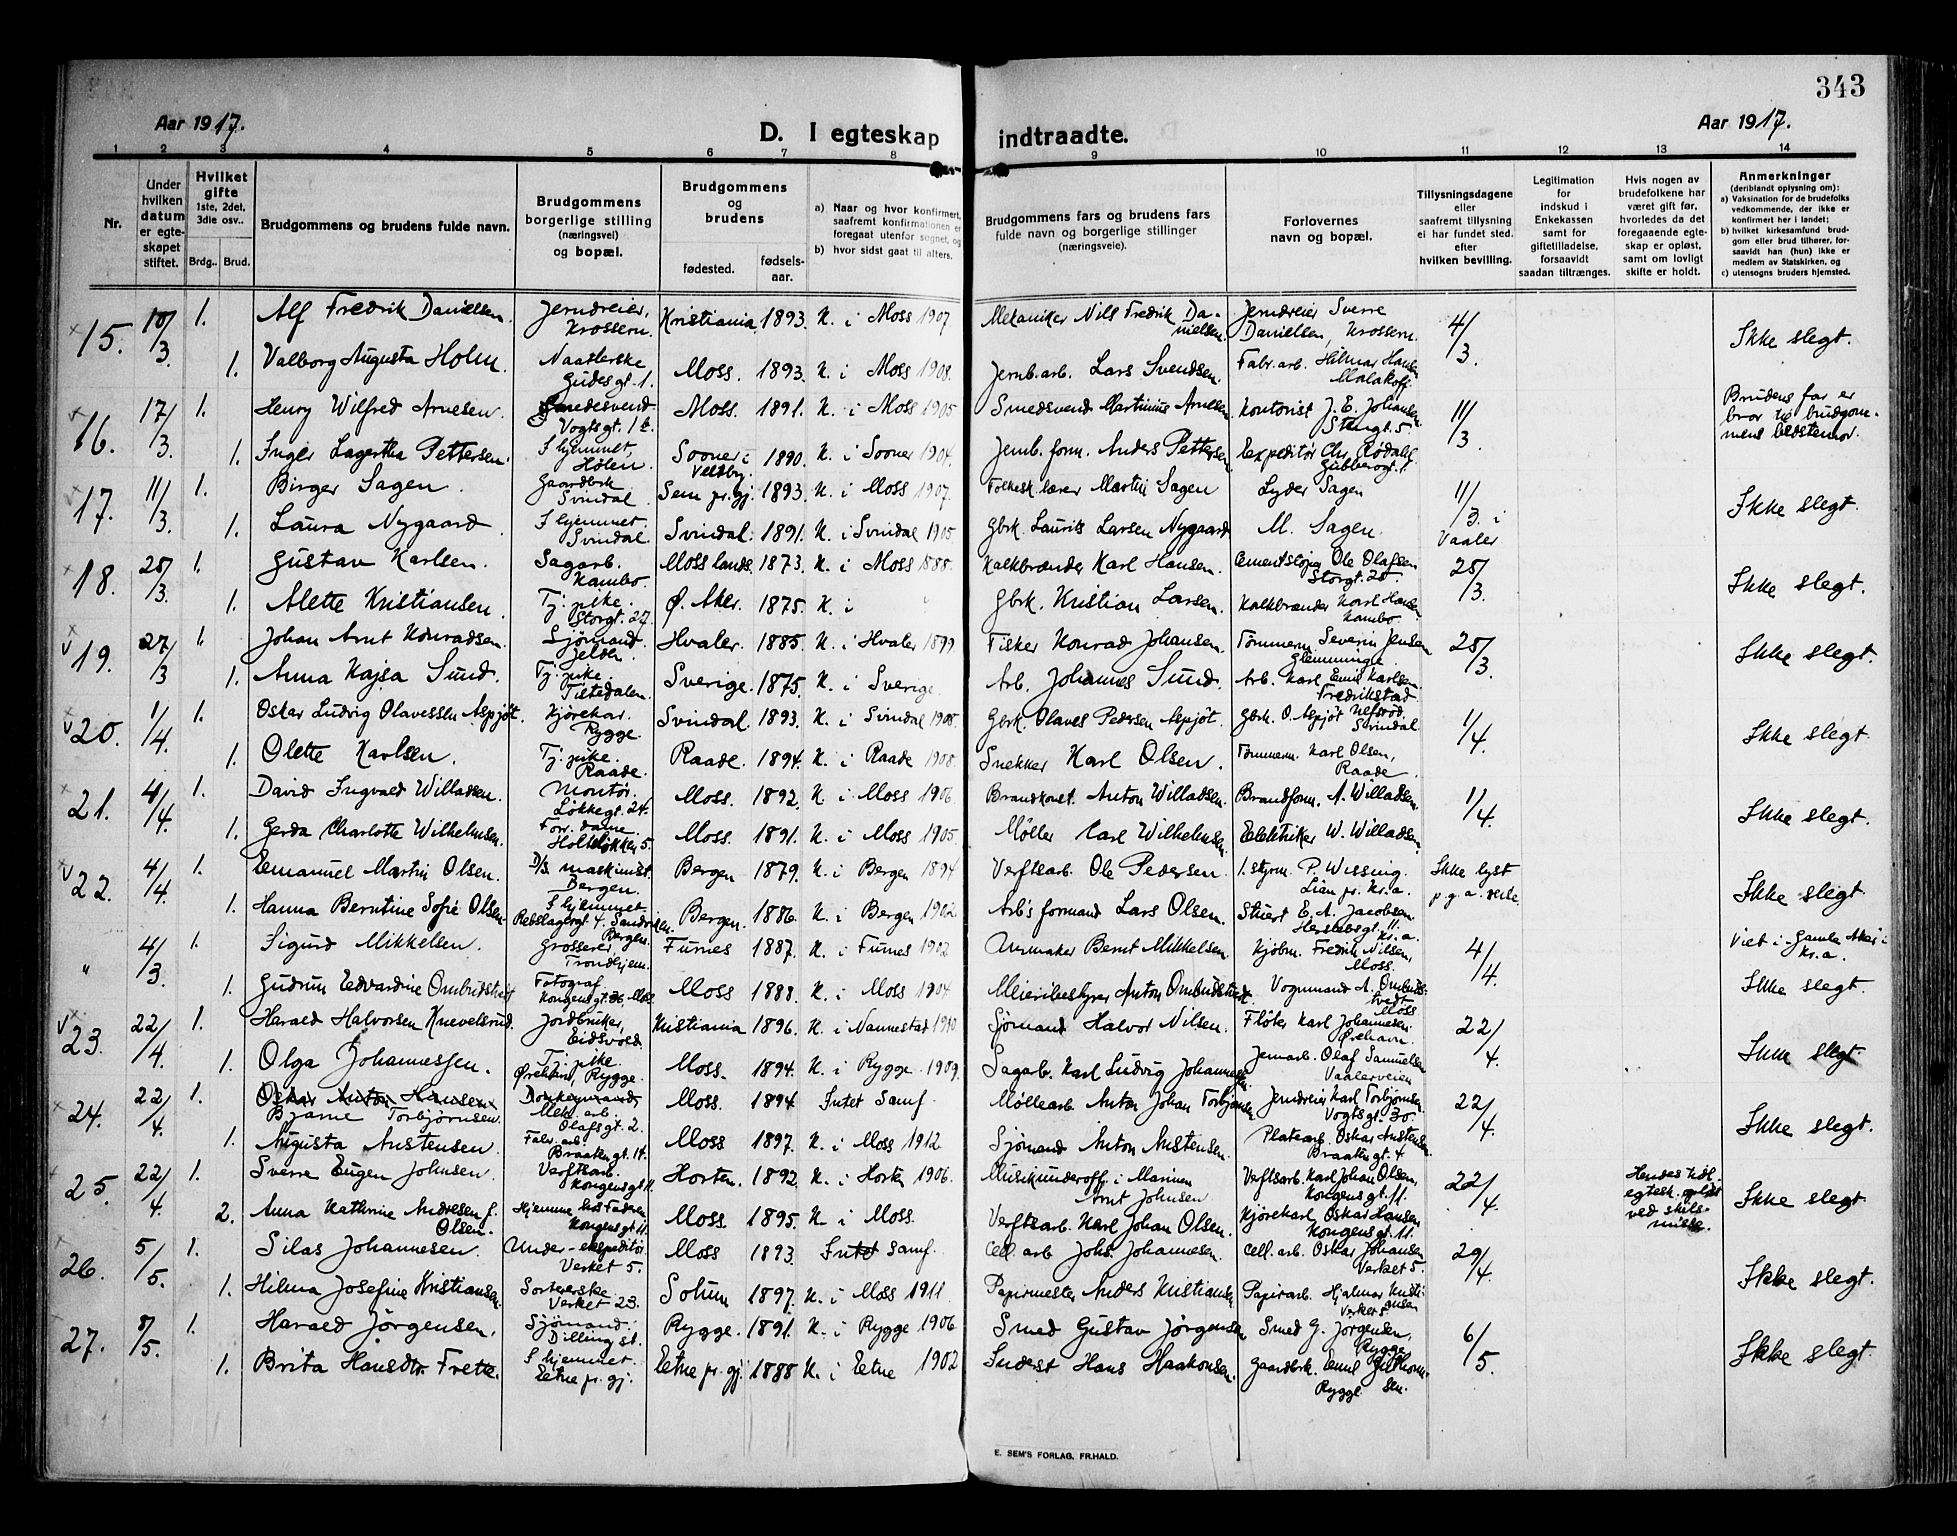 343
Aar 1917.
D. I egteskap indtraadte.
Aar 1917.
1 2 3 4 5 6 7 8 9 10 11 12 13 14
Nr.
Under hvilken datum er egteskapet stiftet.
Hvilket gifte 1ste, 2det, 3die osv..
Brdg.. Brud.
Brudgommens og brudens fulde navn.
Brudgommens borgerlige stilling (næringsvei) og bopæl.
Brudgommens og brudens
fødested.
fødselsaar.
a) Naar og hvor konfirmert, saafremt konfirmationen er foregaat utenfor sognet, og
b) hvor sidst gaat til alters.
Brudgommens fars og brudens fars fulde navn og borgerlige stillinger (næringsveie).
Forlovernes navn og bopæl.
Tillysningsdagene eller saafremt tillysning ei har fundet sted. efter hvilken bevilling.
Legitimation for indskud i Enkekassen samt for giftetilladelse, forsaavidt saadan tiltrænges.
Hvis nogen av brudefolkene har været gift før, hvorledes da det foregaaende egteskap er opløst, samt om lovligt skifte er holdt.
Anmerkninger (deriblandt oplysning om):
a) Vaksination for de brudefolks vedkommende, der ikke er konfirmert her i landet;
b) hvilket kirkesamfund brudgom eller brud tilhører, forsaavidt han (hun) ikke er medlem av Statskirken, og
c) utensogns bruders hjemsted.
15. 10/3 1. Alf Fredrik Danielsen. Jerndreier, Krossern. Kristiania 1893. K. i Moss 1907 Mekaniker Nils Fredrik Danielsen. Jerndreier Sverre Danielsen, Krossern. 4/3 Ikke slegt.
1. Valborg Augusta Holm. Naatlerske Gudesgt. 1. Moss. 1893. K. i Moss 1908. Jernb.arb. Lars Svendsen. Fabr.arb. Hilmar Hansen Malakoff.
16. 17/3 1. Henry Wilfred Arnesen. Smedesvend Vogtsgt. Moss. 1891. K. i Moss 1905 Smedsvend Martinius Arnesen Kontorist J. E. Johansen Storgt. 5 11/3 Brudens far er bror til brudgommens bedstemor.
1. Inger Lagertha Pettersen. I hjemmet, Hølen. Sooner i Vestby. 1890. K. i Sooner 1904. Jernb. form. Anders Pettersen Expeditør Chr. Rødahl
17. 11/3 1. Birger Sagen. Gaardbrk Svindal. Sem pr.gj. 1893. K. i Moss 1907. Folkesk.lærer Martin Sagen Lyder Sagen 11/3. i Vaaler Ikke slegt.
1. Laura Nygaard I hjemmet. Svindal. Svindal. 1891. K. i Svindal 1905 Gbrk. Laurits Larsen Nygaard M. Sagen.
18. 25/3 1. Gustav Karlsen. Sagarb. Kambo Moss lands. 1873. K. i Moss 1888. Kalkbrænder Karl Hansen. Cementstøper Ole Olafsen Storgt. 20. 25/3. Ikke slegt.
1. Alette Kristiansen. Tj.pike. Storgt. 27. Ø. Aker. 1875. K. i Gbrk. Kristian Larsen. Kalkbrænder Karl Hansen Kambo
19. 27/3 1. Johan Arnt Konradsen. Sjømand Jelöen. Hvaler. 1885. K. i Hvaler 1899 Fisker Konrad Johansen. Tømmerm. Severin Jensen Glemminge 25/3. Ikke slegt.
1. Anna Kajsa Sund. Tj.pike. Tistedalen. Sverige. 1875. K. i Sverige. Arb. Johannes Sund. Arb. Karl Emil Karlsen. Fredrikstad
20. 1/4. 1. Oskar Ludvig Olavessen Aspjøt. Kjørekar. Rygge Svindal. 1893. K. i Svindal 1908. Gbrk. Olaves Pedersen Aspjøt. Gbrk. O. Aspjøt Svindal 1/4. Ikke slegt.
1. Olette Karlsen. Tj.pike. Raade. Raade. 1894. K. i Raade 1908. Snekker Karl Olsen. Tømmerm. Karl Olsen, Raade
21. 4/4. 1. David Ingvald Willadsen. Montør. Løkkegt. 24. Moss. 1892. K. i Moss 1906. Brandkonst. Anton Willadsen. Brandform. A. Willadsen. 1/4. Ikke slegt.
1. Gerda Charlotte Wilhelmsen. Forr. dame. Holteløkken 5. Moss. 1891. K. i Moss 1905. Møller Carl Wilhelmsen. Elektriker W. Willadsen.
22. 4/4. 1. Emanuel Martin Olsen. D/S maskinist. Bergen. Bergen 1879. K. i Bergen 1894 Verftsarb. Ole Pedersen 1. styrm. P. Wissing. Lian pr. Kr.a. Ikke lyst p.g.a. reise. Ikke slegt.
1. Hanna Berntine Sofie Olsen. I hjemmet Rebslagergt. 4. Sandviken. Bergen. Bergen. 1886. K. i Bergen 1902. Arb's formand Lars Olsen. Stuert E. A. Jacobsen. Herslebsgt. 11. Kr.a.
" 4/3 1. Sigurd Mikkelsen. Grosserer Trondhjem. Furnes 1887. K. i Furnes 1902 Urmaker Bernt Mikkelsen Kjøbm. Fredrik Nilsen, Moss. 4/4. Viet i Gamle Aker i Kr.a. Ikke slegt.
1. Gudrun Edvardine Ombudstvedt Fotograf Kongensgt. 36, Moss. Moss 1888. K. i Moss 1904 Meieribestyrer Anton Ombudstvedt Vognmand A. Ombudstvedt Moss
23. 22/4. 1. Harald Halvorsen Knevelsrud. Jordbruker, Eidsvold. Kristiania 1896. K. i Nannestad 1910 Sjømand Halvor Nilsen. Fløter Karl Johannesen. Ørehavn. 22/4. Ikke slegt.
1. Olga Johannessen. Tj.pike. Ørehavn, Rygge. Moss. 1894. K. i Rygge 1909. Sagarb. Karl Ludvig Johannesen. Jernarb. Olaf Samuelsen Vaalerveien
24. 22/4. 1. Oskar Anton Hansen Bjarne Torbjørnsen. Donkeymand, Mek. arb. Olafsgt. 2. Moss. 1894 Intet Samf. Møllearb. Anton Johan Torbjørnsen Jerndreier Karl Torbjørnsen Vogtsgt. 30. 22/4. Ikke slegt.
1. Augusta Anstensen. Fabr. arb. Braatengt. 14. Moss 1897. K. i Moss 1912. Sjømand Anton Anstensen. Platearb. Oskar Anstensen. Braatengt. 4
25. 22/4. 1. Sverre Eugen Johnsen. Verftsarb. Kongensgt. 11. Horten. 1892. K. i Horten 1906. Musikunderoff. i Marinen Arnt Johnsen Verftsarb. Karl Johan Olsen, Kongensgt. 11. 22/4. Hendes tidl. egtesk. opløst ved skilsmisse. Ikke slegt.
2. Anna Kathrine Andresen f. Olsen. Hjemme hos Faderen Kongensgt. 11. Moss. 1895. K. i Moss. Verftsarb. Karl Johan Olsen. Kjørekarl Oskar Hansen Kongensgt. 11.
26. 5/5. 1. Silas Johannesen. Under-ekspeditør Verket 5. Moss 1893. Intet Samf. Cell.arb Johs. Johannesen. Cell. arb. Oskar Johansen Verket 5. 29/4. Ikke slegt.
1. Hilma Josefine Kristiansen. Sortererske Verket 23. Solum 1897. K. i Moss 1911. Papirmester Anders Kristiansen Papirarb. Hjalmar Kristiansen Verket 5.
27. 8/5. 1. Harald Jørgensen. Sjømand. Dilling st. Rygge. 1891. K. i Rygge 1906. Smed Gustav Jørgensen Smed G. Jørgensen, Rygge 6/5. Ikke slegt.
1. Brita Hansdtr. Frette. I hjemmet. Etne pr. gj. Etne pr. gj. 1888 K. i Etne 1902 Inderst Hans Haakonsen. Gaardbrk. Emil Guthormsen. Rygge
E. SEM'S FORLAG, FR.HALD.